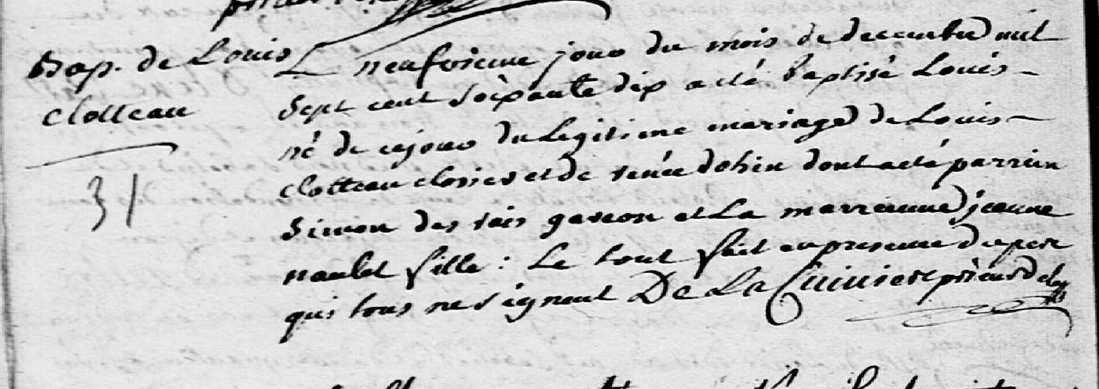 Bap. de Louis
Clotteau
31
Le neufvieme jour du mois de decembre mil
sept cent soixante dix a été baptisé Louis
né de cejour du legitime mariage de Louis
Clotteau closier et de renée dohin dont a été parrein
Simon des rais garcon et La marrienne jeanne
naulet fille : Le tout fait en presence du pere
qui tous ne signent De La Cuivrere prieur